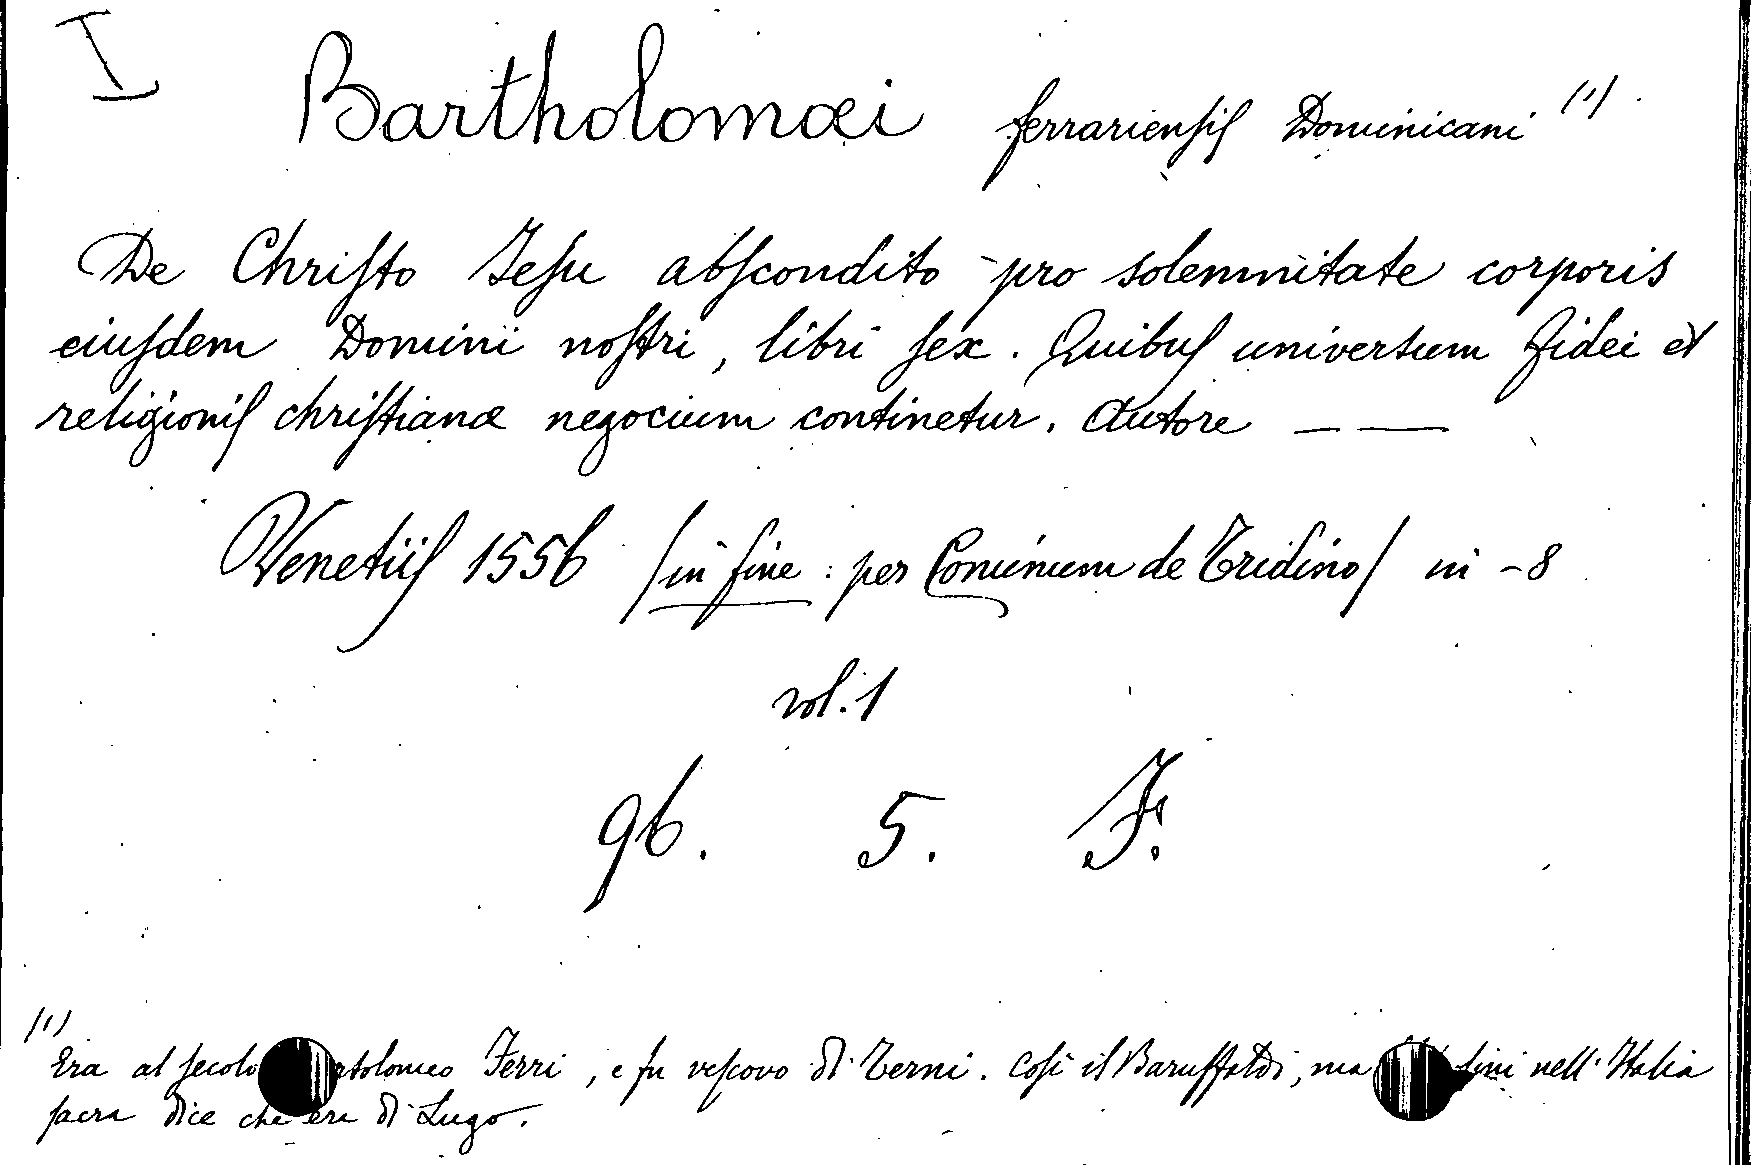 I
Bartholomæi ferrariensis Dominicani (1)
De Christo Jesu abscondito pro solemnitate corporis
eiusdem Domini nostri, libri sex. Quibus universum fidei et
religionis christianæ negocium continetur. Autore — —
Venetiis 1556 (in fine: per Cominum de Tridino) in-8
vol. 1
96. 5. F.
(1)
Era al secolo Bartolomeo Ferri, e fu vescovo di Terni. Così il Baruffaldi, ma nell'Italia
sacra dice che era di Lugo.